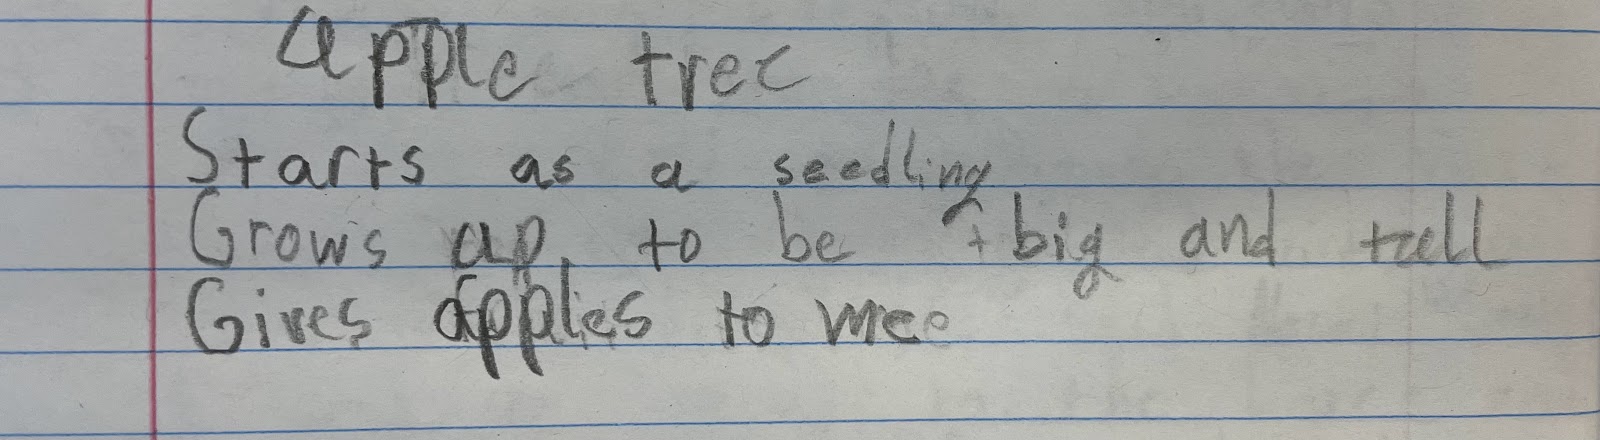 apple tree
Starts as a seedling
Grows up to be big and tall
Gives apples to me